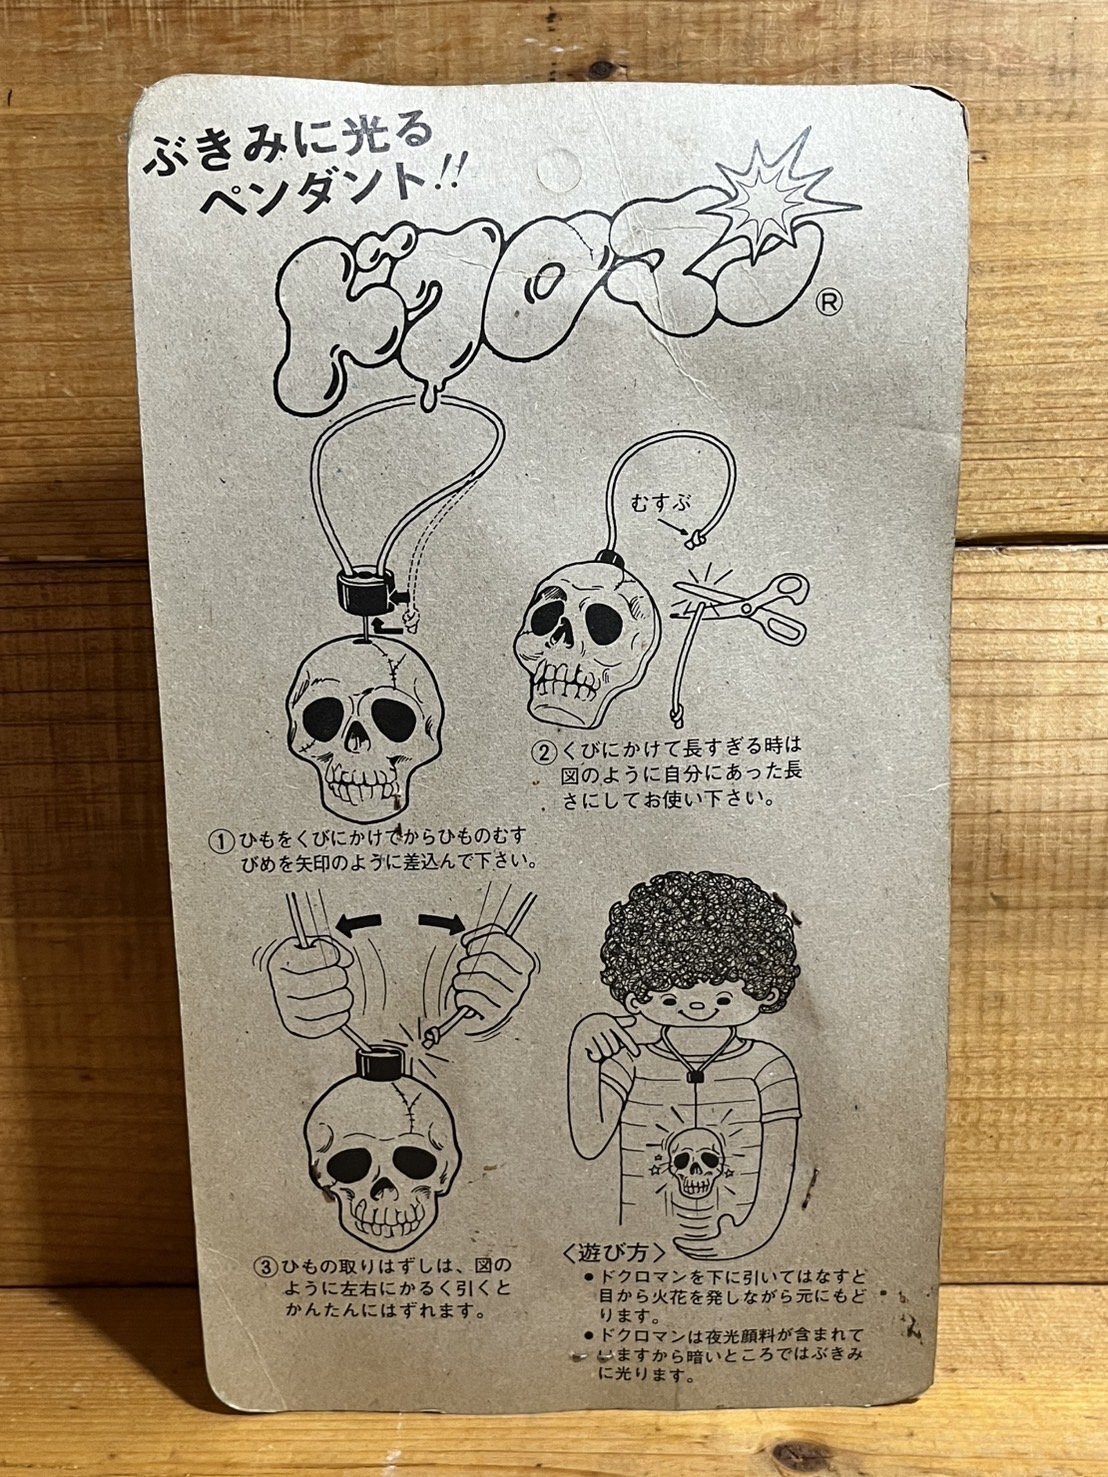 ぶきみに光る
ペンダント!!
ドクロマン
®
むすぶ
①ひもをくびにかけてからひものむす
びめを矢印のように差込んで下さい。
②くびにかけて長すぎる時は
図のように自分にあった長
さにしてお使い下さい。
③ひもの取りはずしは、図の
ように左右にかるく引くと
かんたんにはずれます。
〈遊び方〉
●ドクロマンを下に引いてはなすと
目から火花を発しながら元にもど
ります。
●ドクロマンは夜光顔料が含まれて
いますから暗いところではぶきみ
に光ります。